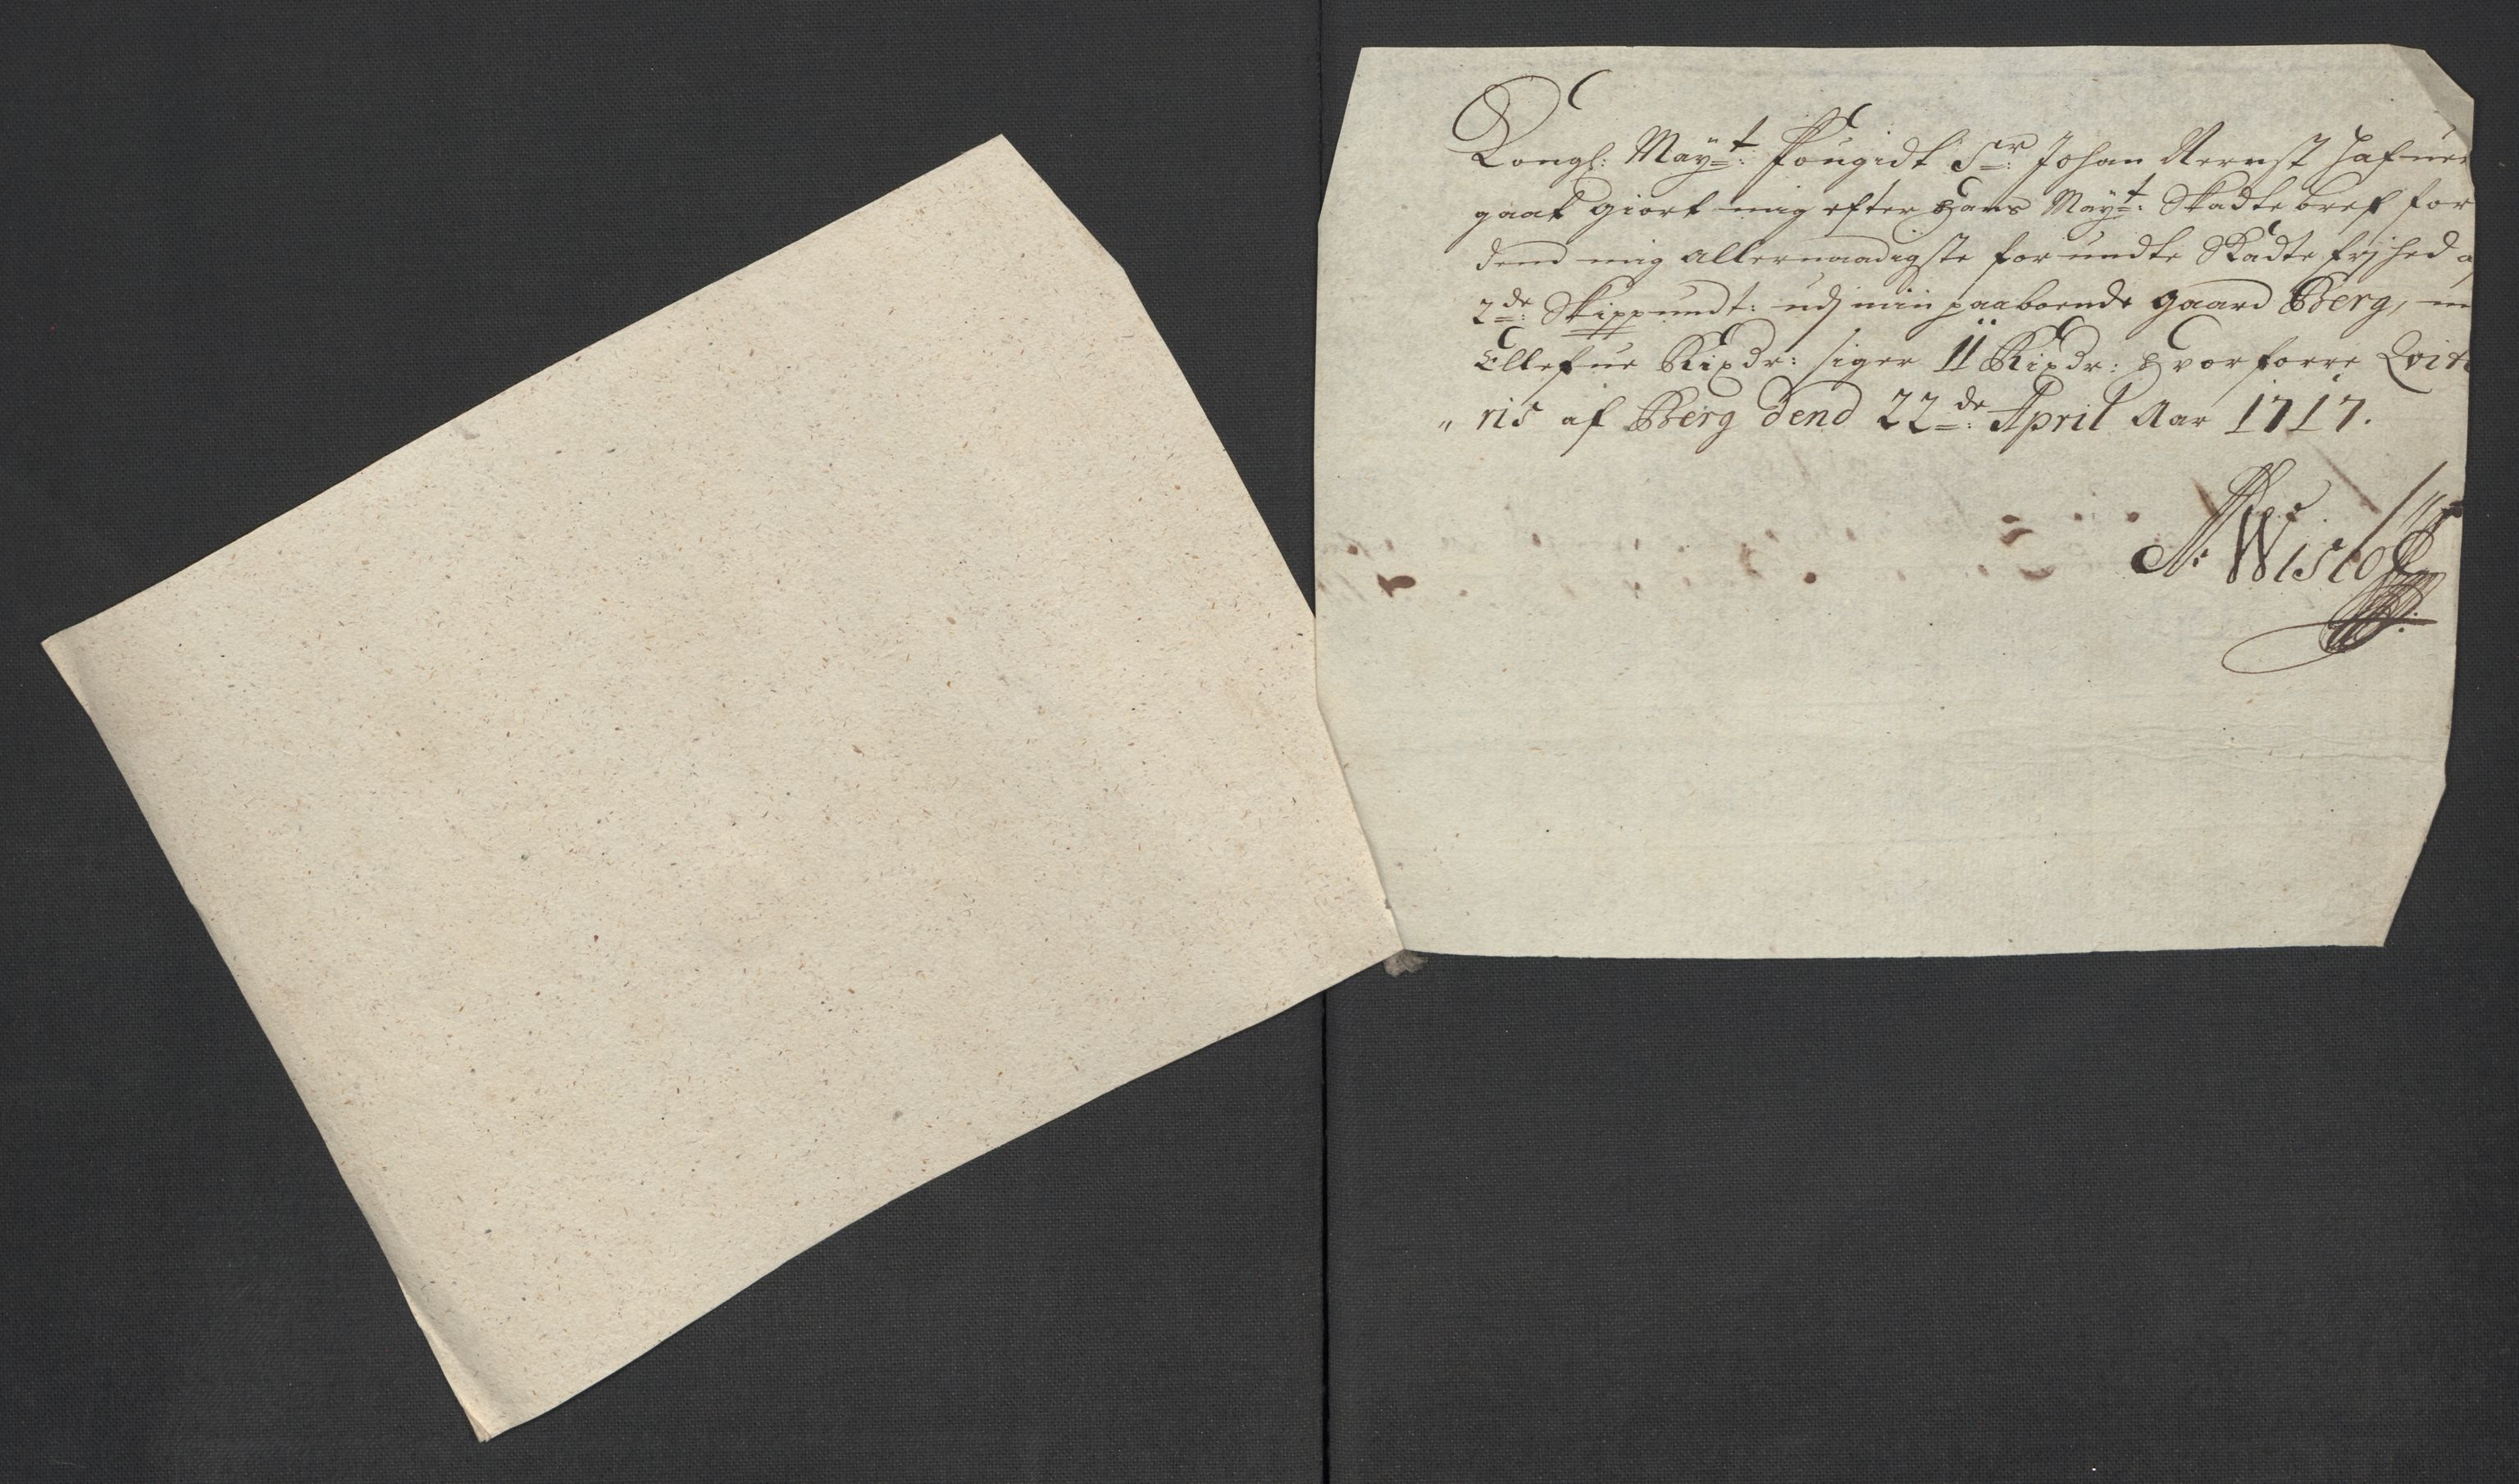 Kongl: May=t: fougidt Sr=: Johan Aernst Hafuer
gaat giort mig efter Hans May=t: Skadte bref for
dend mig allernaadigste forundte Skadte frihed a
2de=: Skippundt: udj min paaboende gaard Berg, m
Ellefue Rixdr: siger 11 Rixdr: Hvorforre Qvit
" ris af Berg dend 22de=: April Aar 1717.